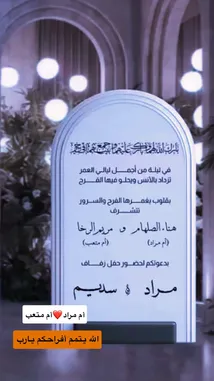 بارك الله لهما وبارك عليهما وجمع بينهما في خير
في ليلة من أجمل ليالي العمر
تزداد بالأنس ويحلو فيها الفرح
بقلوب يغمرها الفرح والسرور
تتشرف
هناء الصلهام و مريم الرخا
(أم مراد) (أم متعب)
بدعوتكم لحضور حفل زفاف
مراد & سديم
ام مراد❤️ام متعب
الله يتمم أفراحكم يارب